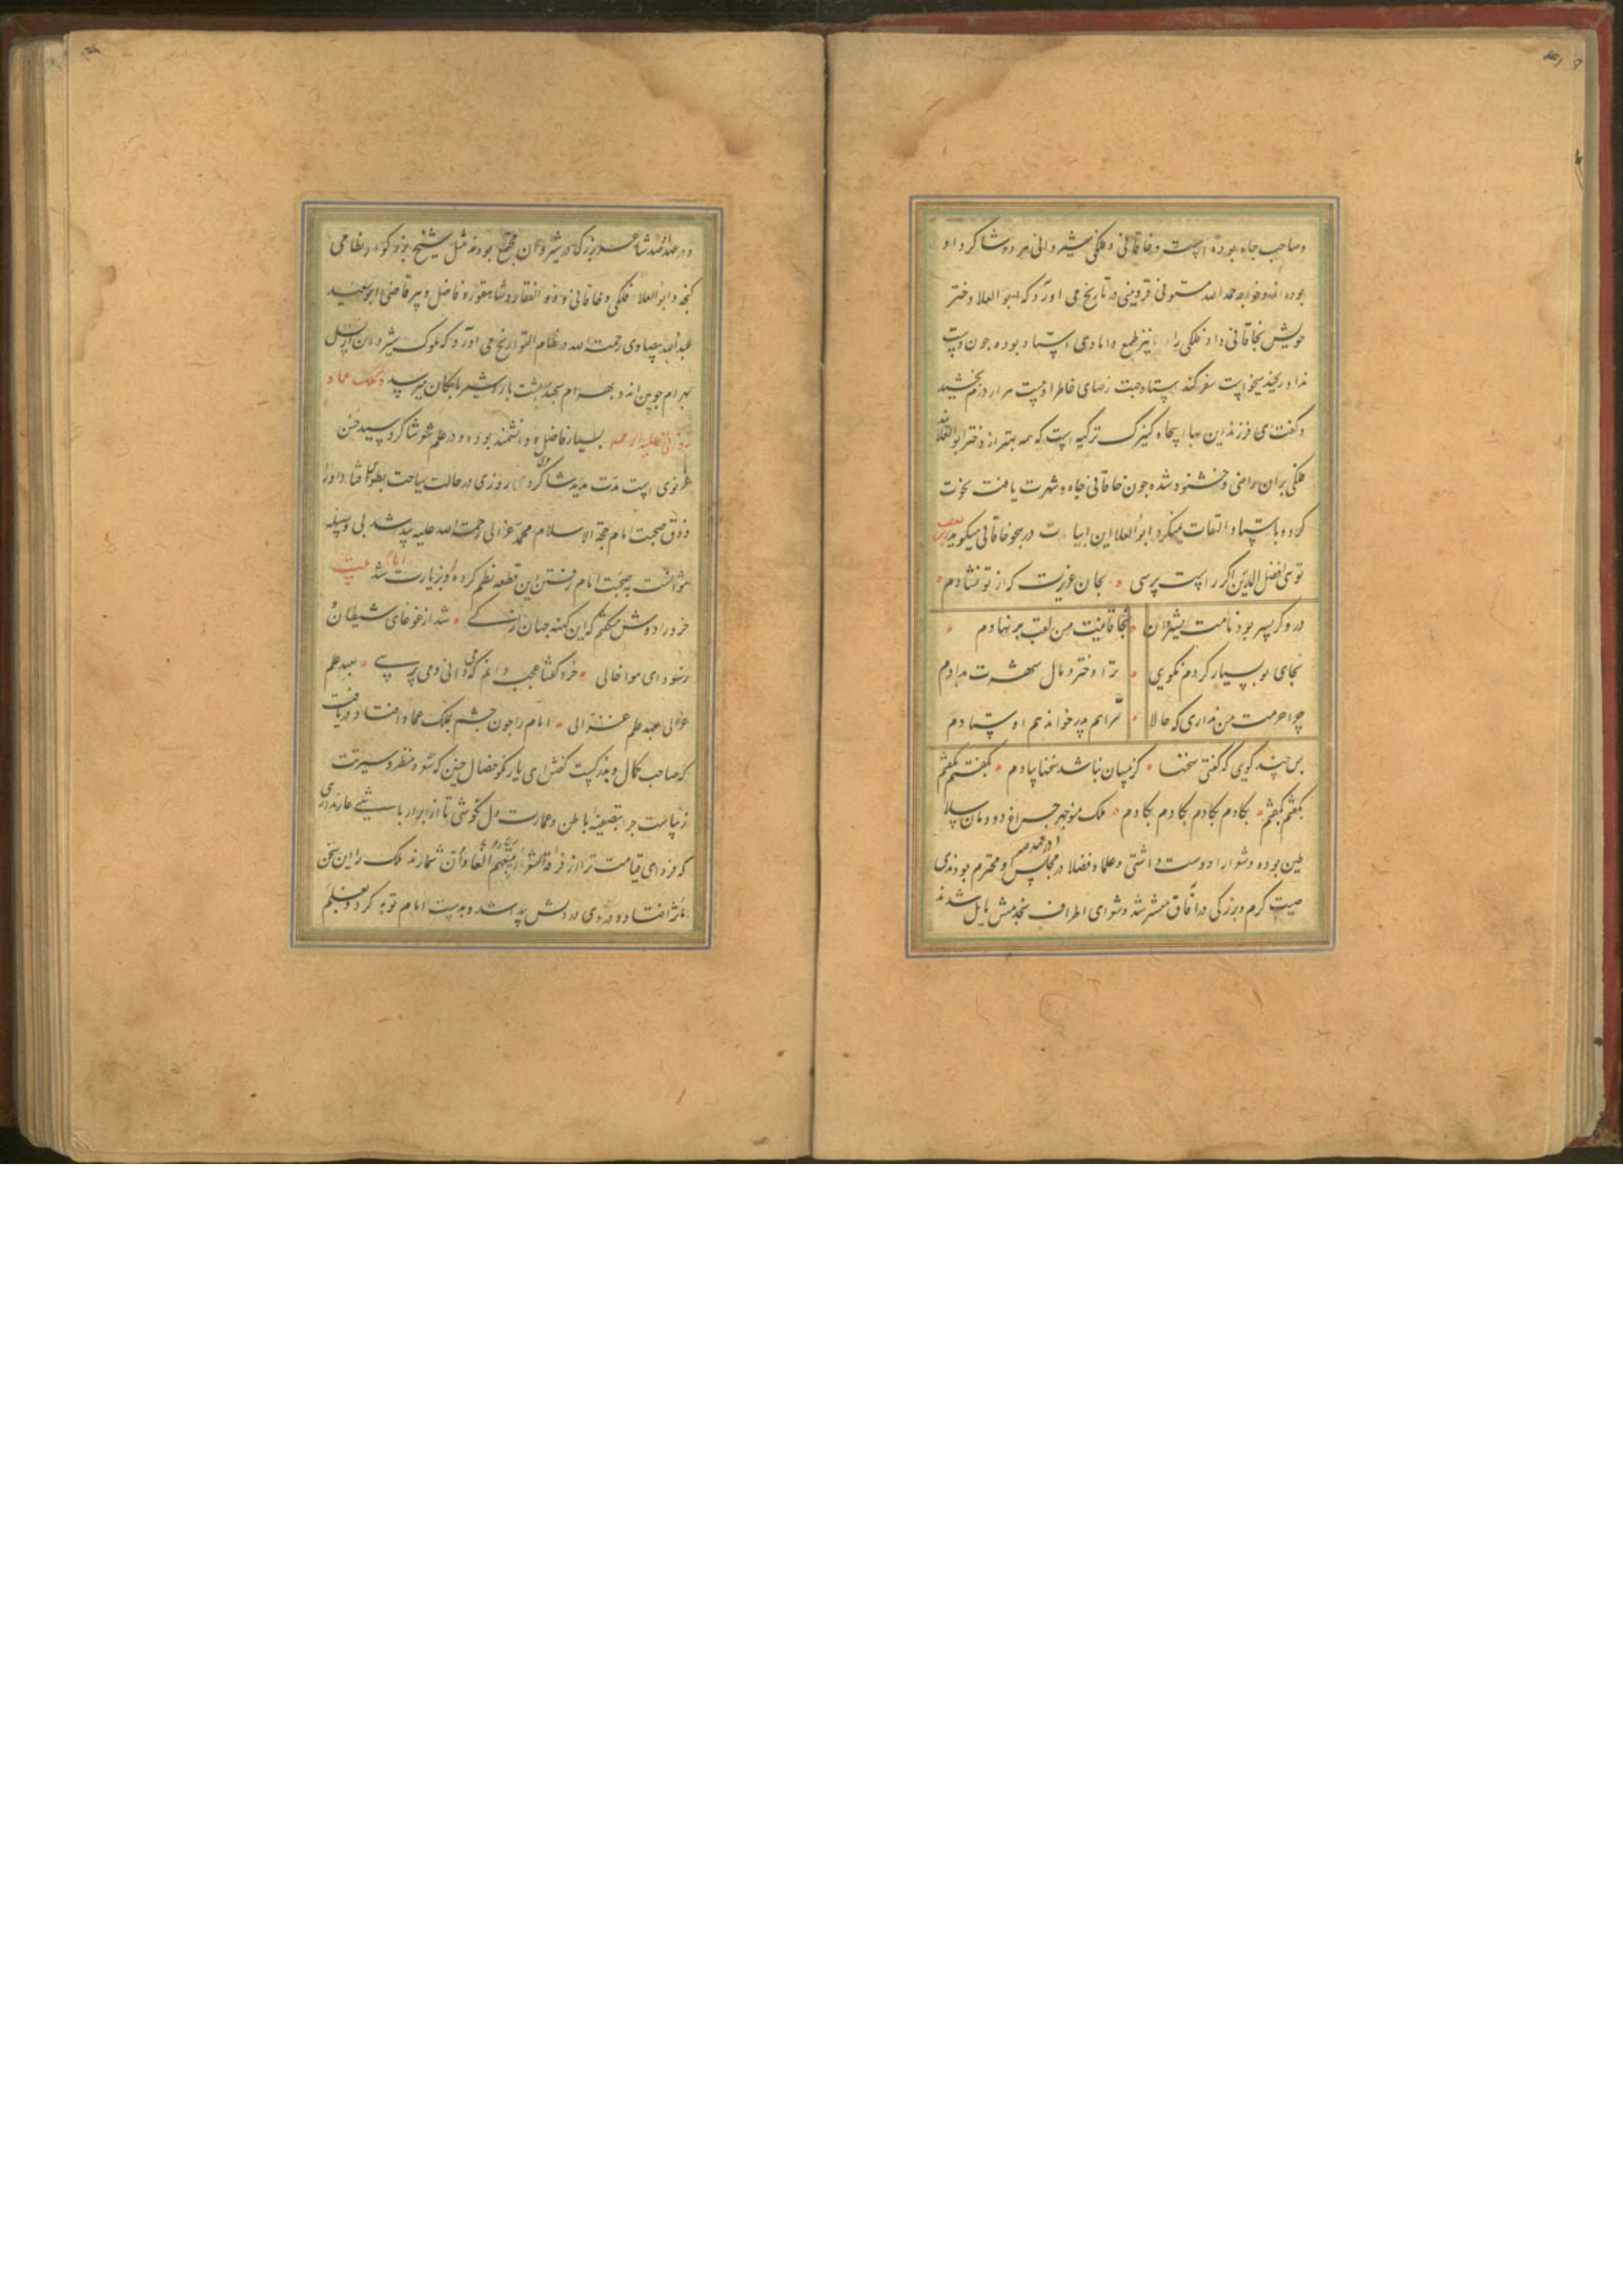 وصاحب جاه بوده است و خاقانی و فلکی شیروانی هر دو شاکرد او
بوده اند و خواجه حمد الله مستوفی قزوینی در تاریخ می آورد که ابو العلا دختر
خویش بخاقانی داد فلکی را نیز طمع دامادی استاد بوده جون دست
نداد رنجید میخواست سفر کند استاد جهت رضای خاطر او بیست هزار درم بخشید
و کفت ای فرزند این بهای پنجاه کنیزک ترکیه است که همه بهتر از دختر ابو العلااند
فلکی بران راضی و خشنود شده جون خاقانی جاه و شهرت یافت نخوت
کرد و باستاد التفات نمیکرد ابو العلا این ابیات در هجو خاقانی میکوید
توی افضل الدین اکر راست پرسی بجان عزیزت که از تو نشادم
دروکر پسر بود نامت بشیروان بخاقانیت من لقب بر نهادم
بجای تو بسیار کردم نکویی ترا دختر و مال و شهرت بدادم
چرا حرمت من نداری که حالا ترا هم پدر خوانده هم اوستادم
بس چند کویی که کفتی سخنها کزینسان نباشد سخنها بیادم بکفتم بکفتم
بکفتم بکفتم بکادم بکادم بکادم بکادم ملک منوجهر جراغ دودمان سلا
طین بوده و شعرا را دوست داشتی و علما و فضلا در مجلس او محترم بودندی
صیت کرم و بزرکی در آفاق منتشر شد و شعرای اطراف بخدمتش مایل شدند
و در عهد او صد شاعر بزرک در شیروان مجتمع بودند مثل شیخ بزرکوار نظامی
کنجه و ابو العلا و فلکی و خاقانی و ذو الفقار و شاهفور و فاضل و پیر قاضی ابو سعید
عبد الله بیضاوی رحمت الله در نظام التواریخ می آورد که ملوک شیروان از نسل
بهرام جوبین اند و بهرام بجند پشت باردشیر بابکان میرسد ذکر ملک عماد
زوزنی علیه الرحمه بسیار فاضل و دانشمند بوده و در علم شعر شاکرد سید حسن
غزنوی است مدت مدید شاکردی روزی در حالت سیاحت بطوس افتاد او را
ذوق صحبت امام حجة الاسلام محمد غزالی رحمت الله علیه پیدا شد بی وسیله
نتوانست بصحبت امام رفتن این قطعه نظم کرده و بزیارت امام شد
خرد را دوش میکفتم که این کهنه جهان تا کی شد از غوغای شیطان و
ز سودای هوا خالی خرد کفتا عجب دارم که میدانی و می پرسی بعهد علم
غزالی بعهد علم غزالی امام را جون جشم بملک عماد افتاد دریافت
که صاحب کمال و بزرکیست کفتش ای یار نکو خصال جنین که تو و منظر و سیرت
زیباست جرا بتصفیه باطن و عمارت دل نکوشی تا از ابرار باشی عار نداری
که فردای قیامت ترا از فرقه الشعراء یتبعهم الغاوان شمارند ملک را این سخن
مؤثر افتاد و دردی در دلش پیدا شد و بدست امام توبه کرد و بعلم